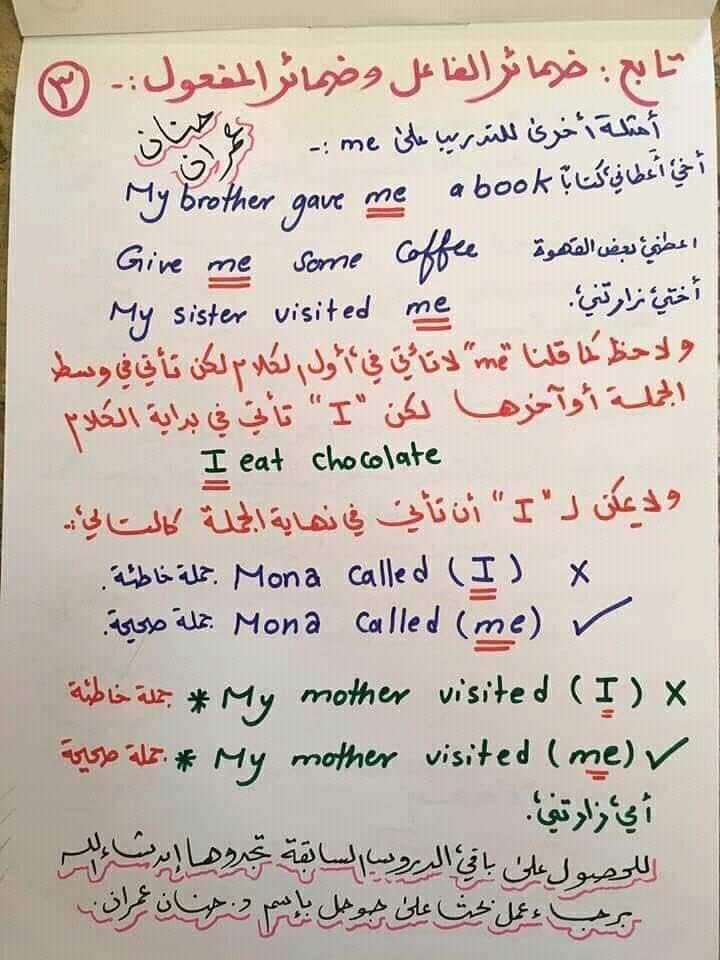 تابع : ضمائر الفاعل وضمائر المفعول :- ٣
حنان عمران
أمثلة أخرى للتدريب على me :-
My brother gave me a book أخي أعطاني كتاباً
Give me some coffee اعطني بعض القهوة
My sister visited me أختي زارتني.
ولاحظ كما قلنا "me" لا تأتي في أول الكلام لكن تأتي في وسط
الجملة أو آخرها لكن "I" تأتي في بداية الكلام
I eat chocolate
ولا يمكن لـ "I" أن تأتي في نهاية الجملة كالتالي :-
Mona called (I) X جملة خاطئة.
Mona called (me) ✓ جملة صحيحة.
* My mother visited (I) X جملة خاطئة
* My mother visited (me) ✓ جملة صحيحة
أمي زارتني.
للحصول على باقي الدروس السابقة تجدوها إن شاء الله
برجاء عمل بحث على جوجل بإسم د. حنان عمران.